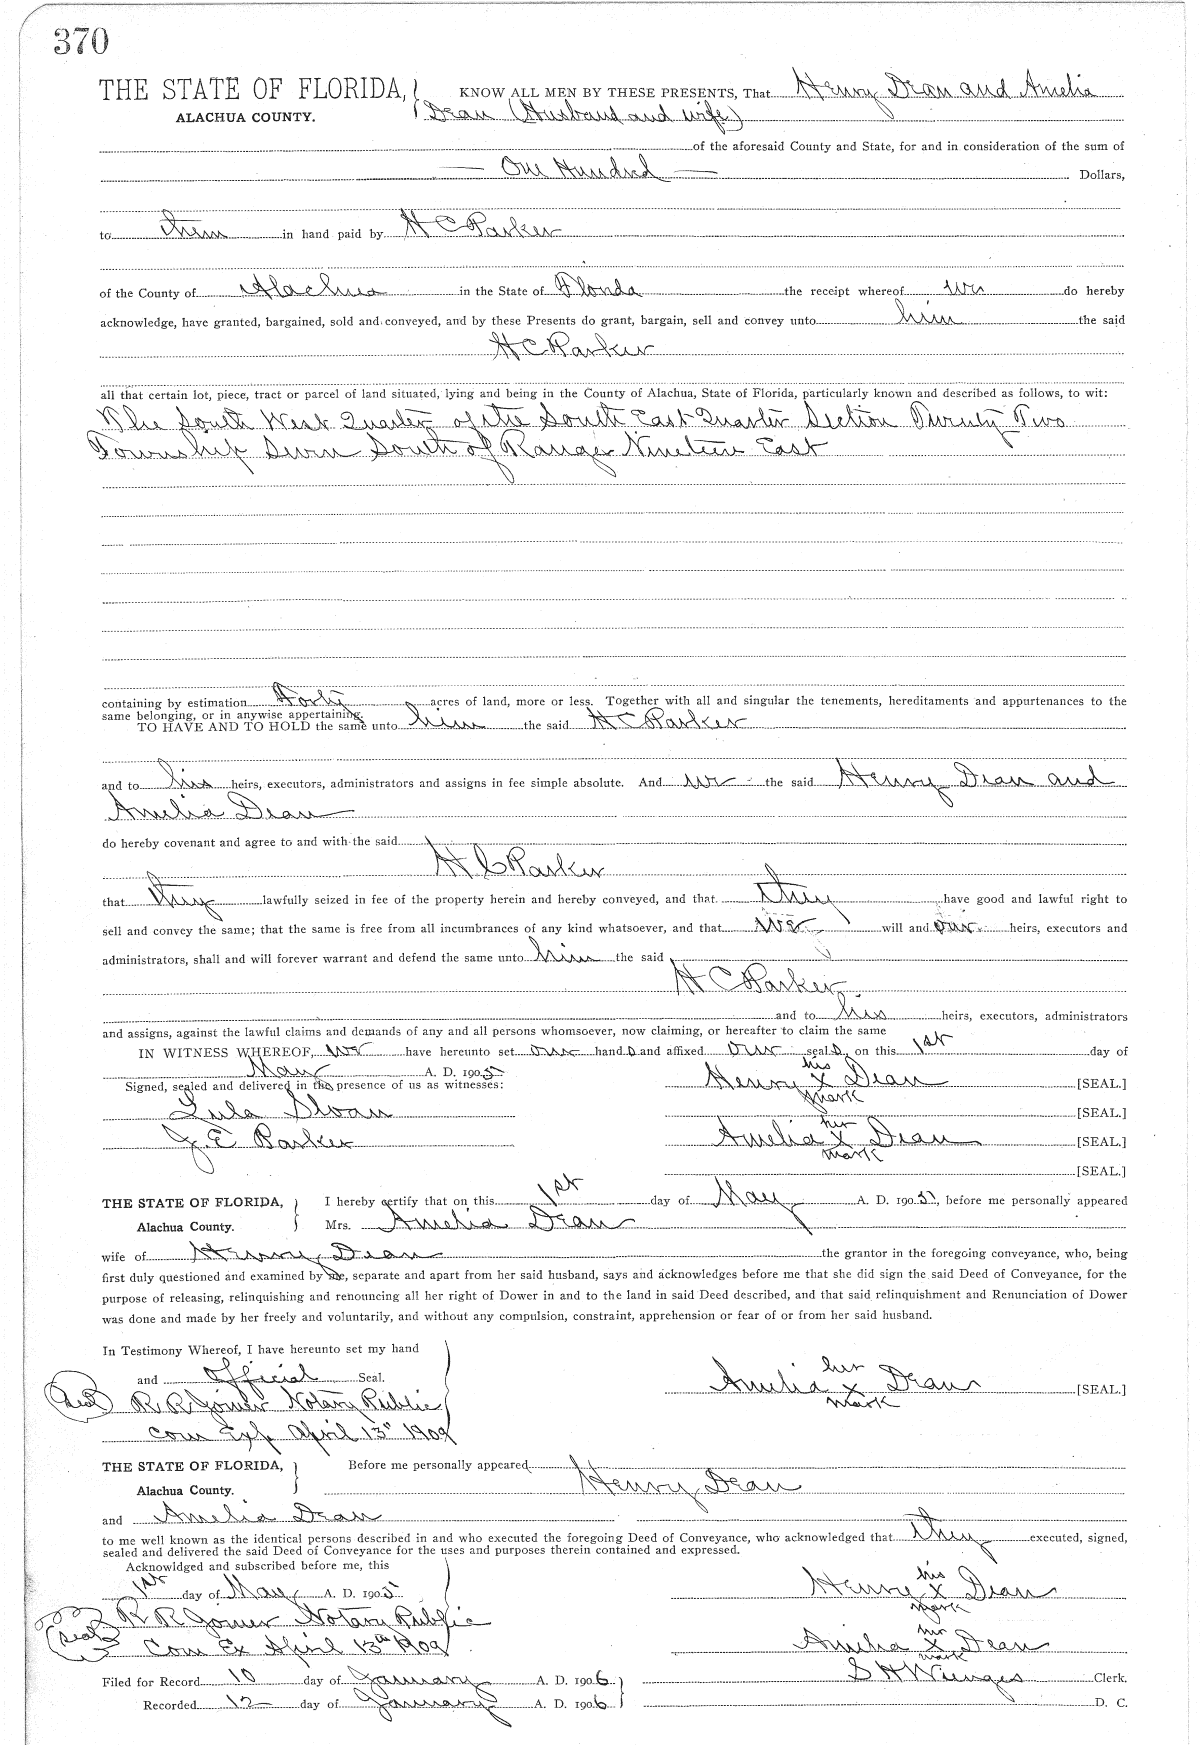 370
THE STATE OF FLORIDA, KNOW ALL MEN BY THESE PRESENTS, That Henry Dean and Amelia
ALACHUA COUNTY. Dean (Husband and wife)
of the aforesaid County and State, for and in consideration of the sum of
— One Hundred — Dollars,
to them in hand paid by H C Parker
of the County of Alachua in the State of Florida the receipt whereof we do hereby
acknowledge, have granted, bargained, sold and conveyed, and by these Presents do grant, bargain, sell and convey unto him the said
H C Parker
all that certain lot, piece, tract or parcel of land situated, lying and being in the County of Alachua, State of Florida, particularly known and described as follows, to wit:
The South West Quarter of the South East Quarter Section Twenty Two
Township Seven South of Range Nineteen East
containing by estimation Forty acres of land, more or less. Together with all and singular the tenements, hereditaments and appurtenances to the
same belonging, or in anywise appertaining.
TO HAVE AND TO HOLD the same unto him the said H C Parker
and to his heirs, executors, administrators and assigns in fee simple absolute. And we the said Henry Dean and
Amelia Dean
do hereby covenant and agree to and with the said
H C Parker
that they lawfully seized in fee of the property herein and hereby conveyed, and that they have good and lawful right to
sell and convey the same; that the same is free from all incumbrances of any kind whatsoever, and that we will and our heirs, executors and
administrators, shall and will forever warrant and defend the same unto him the said
H C Parker
and to his heirs, executors, administrators
and assigns, against the lawful claims and demands of any and all persons whomsoever, now claiming, or hereafter to claim the same
IN WITNESS WHEREOF, we have hereunto set our hands and affixed our seals on this 1st day of
May A. D. 1905
Signed, sealed and delivered in the presence of us as witnesses: Henry his X mark Dean [SEAL.]
Lula Sloan [SEAL.]
J. E Parker Amelia her X mark Dean [SEAL.]
[SEAL.]
THE STATE OF FLORIDA, I hereby certify that on this 1st day of May A. D. 1905, before me personally appeared
Alachua County. Mrs. Amelia Dean
wife of Henry Dean the grantor in the foregoing conveyance, who, being
first duly questioned and examined by me, separate and apart from her said husband, says and acknowledges before me that she did sign the said Deed of Conveyance, for the
purpose of releasing, relinquishing and renouncing all her right of Dower in and to the land in said Deed described, and that said relinquishment and Renunciation of Dower
was done and made by her freely and voluntarily, and without any compulsion, constraint, apprehension or fear of or from her said husband.
In Testimony Whereof, I have hereunto set my hand
and Official Seal. Amelia her X mark Dean [SEAL.]
Seal R R Joiner Notary Public
Com Exp April 13th 1909
THE STATE OF FLORIDA, Before me personally appeared
Alachua County. Henry Dean
and Amelia Dean
to me well known as the identical persons described in and who executed the foregoing Deed of Conveyance, who acknowledged that they executed, signed,
sealed and delivered the said Deed of Conveyance for the uses and purposes therein contained and expressed.
Acknowldged and subscribed before me, this
1st day of May A. D. 1905 Henry his X mark Dean
R R Joiner Notary Public
Seal Com Ex April 13th 1909 Amelia her X mark Dean
Filed for Record 10 day of January A. D. 1906 S H Wienges Clerk.
Recorded 12 day of January A. D. 1906 D. C.